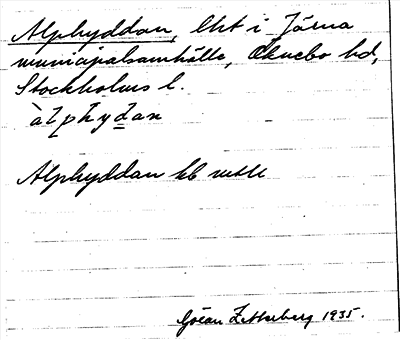 Alphyddan, lht i Järna
municipalsamhälle, Öknebo hd,
Stockholms l.
àlphy̱dan
Alphyddan kb
Göran Zetterberg 1935.